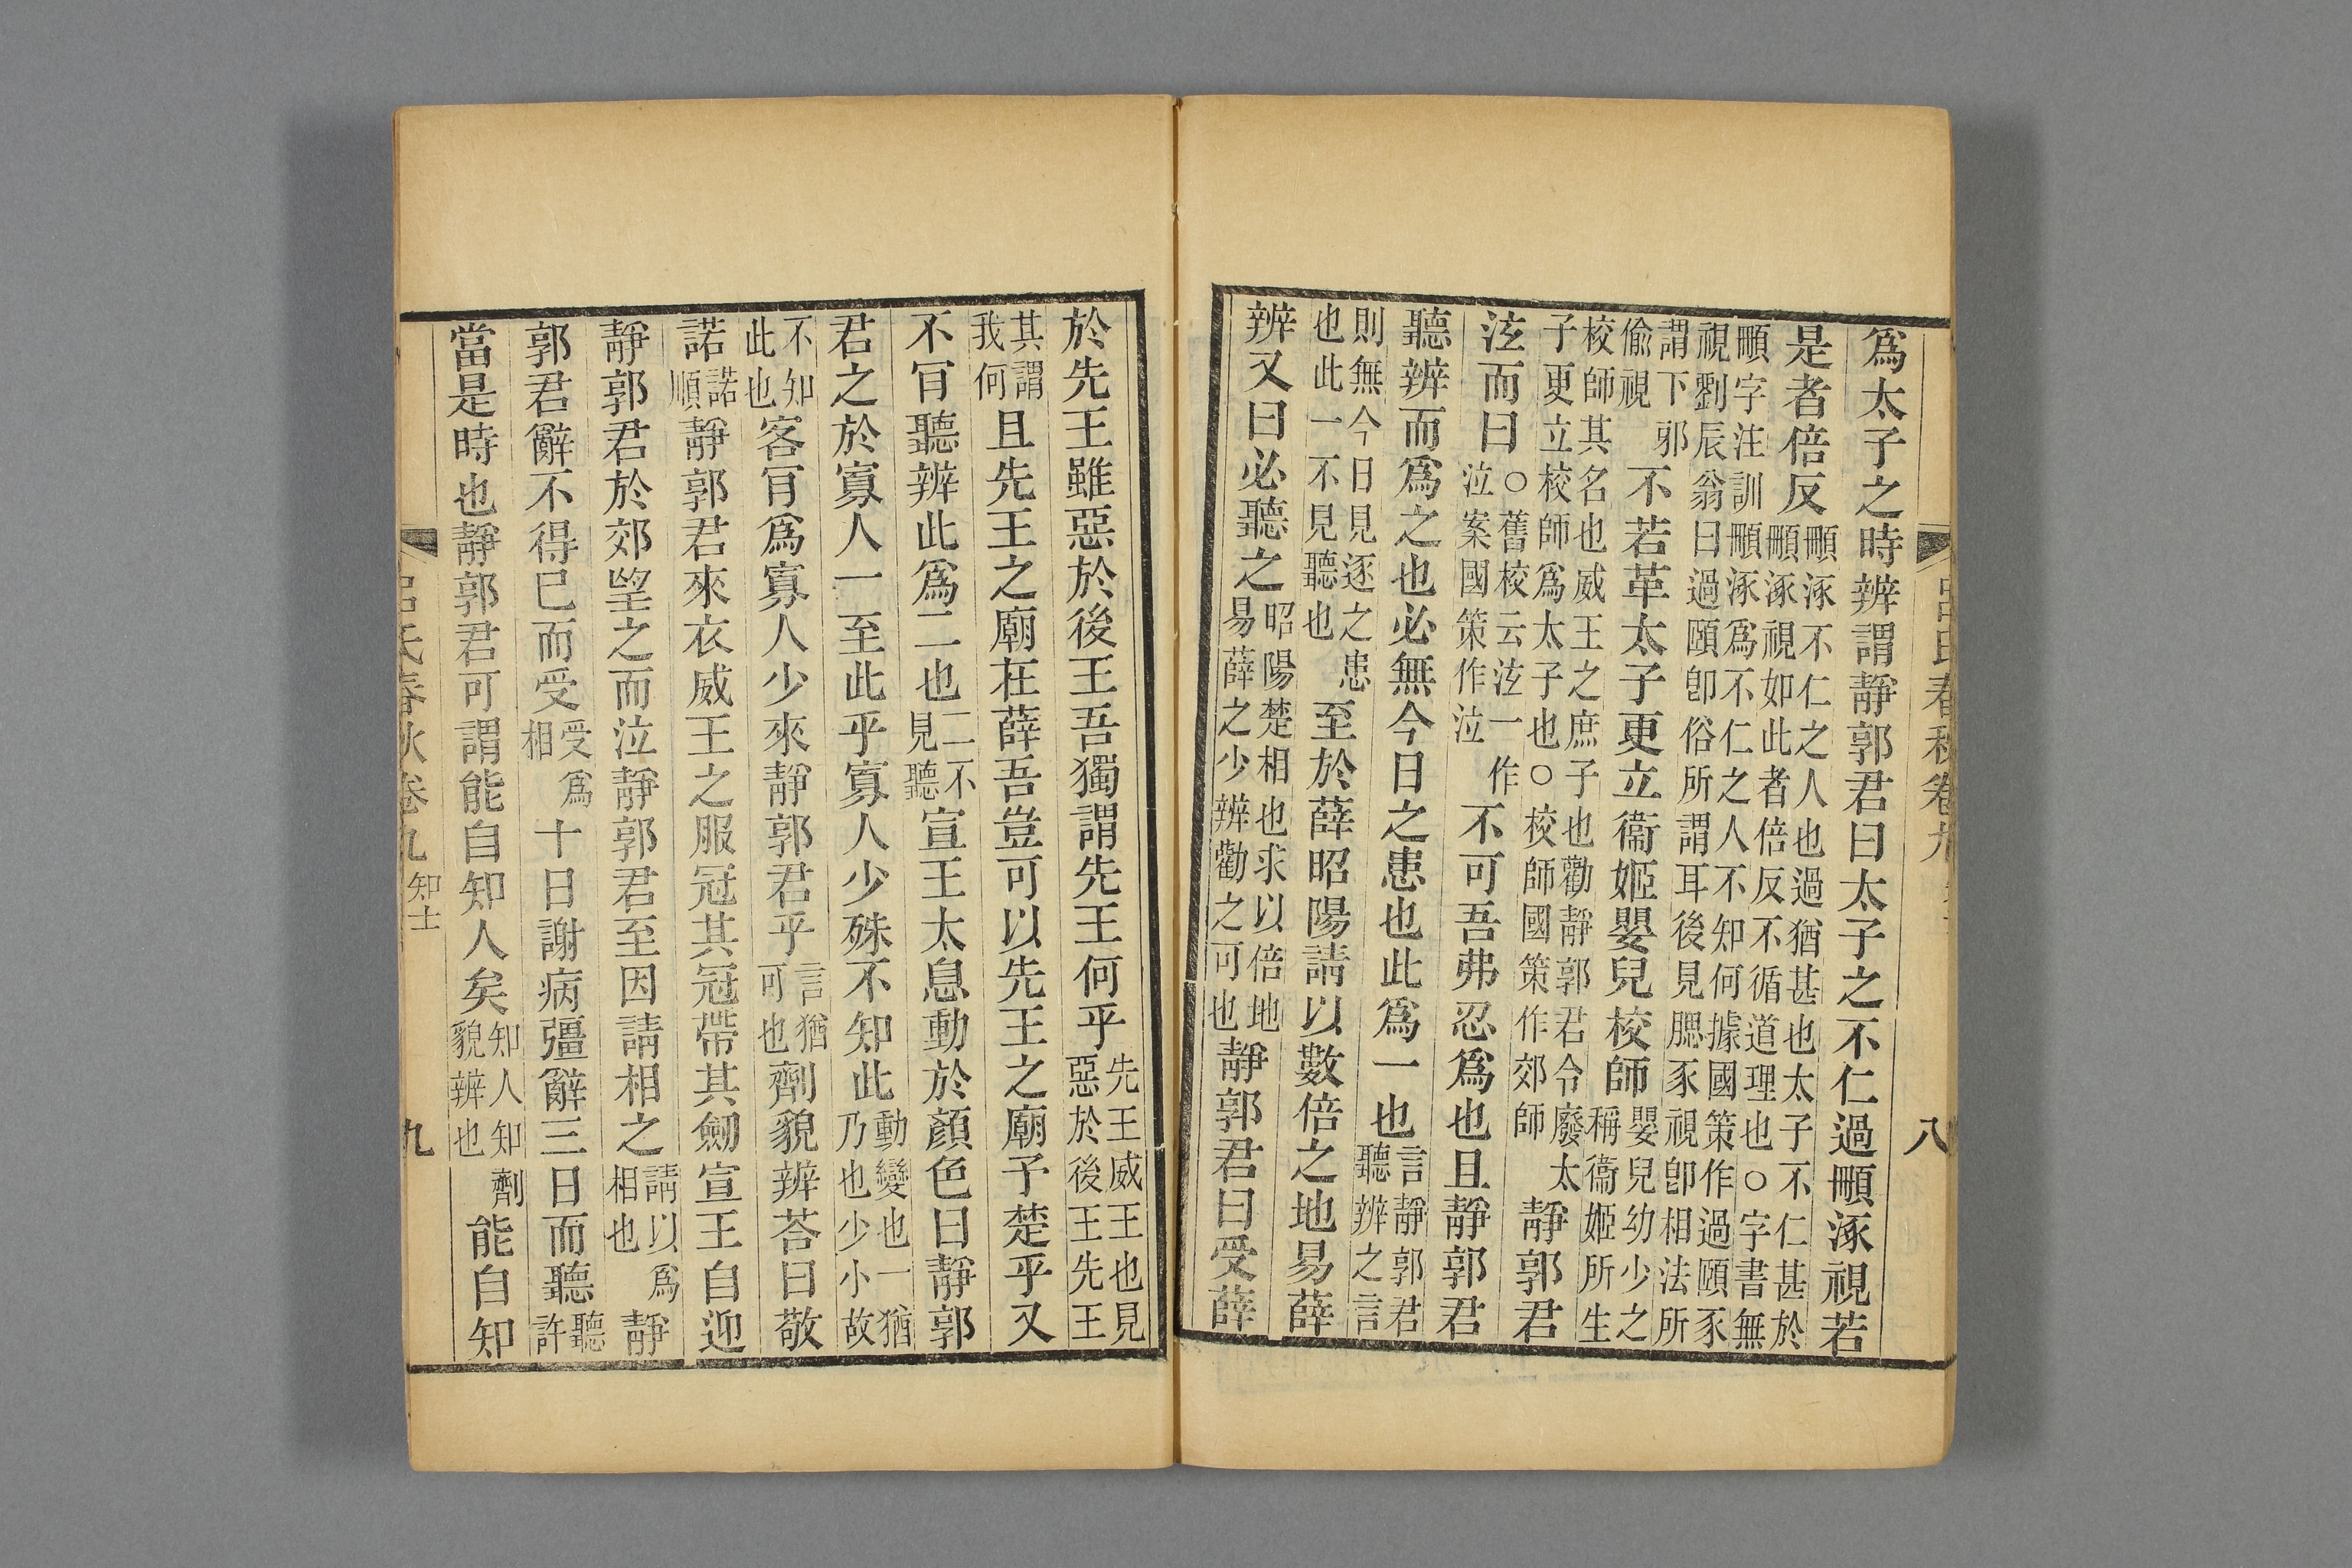 呂氏春秋卷九 八
爲太子之時辨謂靜郭君曰太子之不仁過涿視若
是者倍反涿不仁之人也過猶甚也太子不仁甚於涿視如此者倍反不循道理也○字書無
字注訓涿爲不仁之人不知何據國策作過頤豕視劉辰翁曰過頤卽俗所謂耳後見腮豕視卽相法所
謂下邪偷視不若革太子更立衞姬嬰兒校師嬰兒幼少之稱衞姬所生
校師其名也威王之庶子也勸靜郭君令廢太子更立校師爲太子也○校師國策作郊師靜郭君
泫而曰○舊校云泫一作泣案國策作泣不可吾弗忍爲也且靜郭君
聽辨而爲之也必無今日之患也此爲一也言靜郭君聽辨之言
則無今日見逐之患也此一不見聽也至於薛昭陽請以數倍之地易薛
辨又曰必聽之昭陽楚相也求以倍地易薛之少辨勸之可也靜郭君曰受薛
於先王雖惡於後王吾獨謂先王何乎先王威王也見惡於後王先王
其謂我何且先王之廟在薛吾豈可以先王之廟予楚乎又
不肎聽辨此爲二也二不見聽宣王太息動於顏色曰靜郭
君之於寡人一至此乎寡人少殊不知此動變也一猶乃也少小故
不知此也客肎爲寡人少來靜郭君乎言猶可也劑貌辨荅曰敬
諾諾順靜郭君來衣威王之服冠其冠帶其劒宣王自迎
靜郭君於郊望之而泣靜郭君至因請相之請以爲相也靜
郭君辭不得已而受受爲相十日謝病彊辭三日而聽聽許
當是時也靜郭君可謂能自知人矣知人知貌辨也劑能自知
呂氏春秋卷九 知士 九